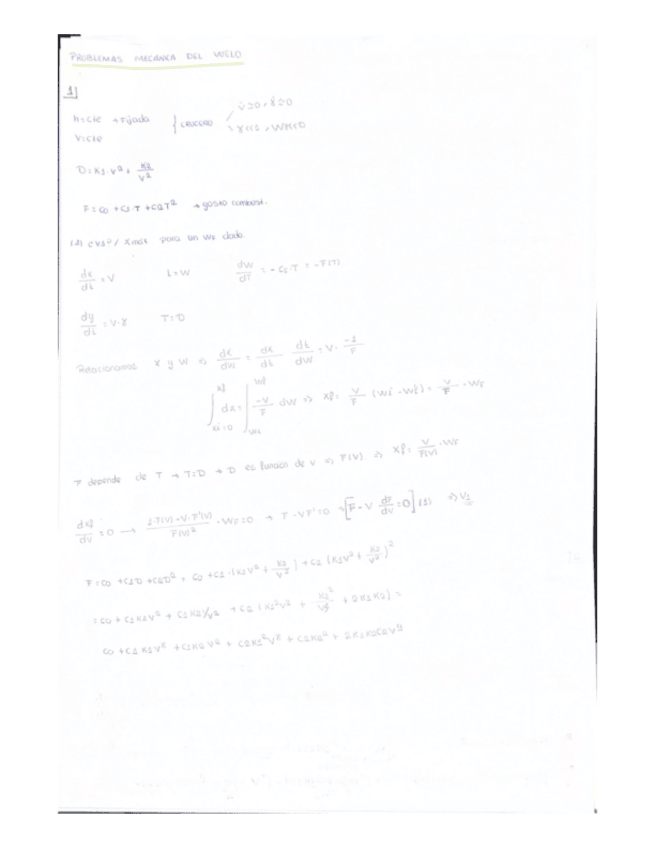 PROBLEMAS MECÁNICA DEL VUELO
1
h=cte → Fijada { CRUCERO V̇≈0, Ẍ≈0
V=cte γ<<1, WH<D
D = K1·V² + K2/V²
F = C0 + C1·T + C2T² → gasto combust.
(1) ¿V1? / Xmáx para un WF dado.
dx/dt = V L=W dW/dT = -C1·T = -F(T)
dy/dt = V·γ T=D
Relacionamos X y W ⇒ dx/dW = dx/dt dt/dW = V· -1/F
∫ xi=0 xf dx = ∫ Wi Wf -V/F dW ⇒ Xf = V/F (Wi - Wf) = V/F · WF
F depende de T → T=D → D es función de V ⇒ F(V) ⇒ Xf = V/F(V) · WF
dXf/dV = 0 → 1·F(V) - V·F'(V) / F(V)² · WF = 0 → F - VF' = 0 → [F - V dF/dV = 0] (1) ⇒ V1
F = C0 + C1D + C2D² = C0 + C1·(K1V² + K2/V²) + C2 (K1V² + K2/V²)²
= C0 + C1K1V² + C1K2/V² + C2 (K1²V² + K2²/V⁴ + 2K1K2) =
C0 + C1K1V² + C1K2V² + C2K1²V² + C2K2² + 2K1K2C2V²